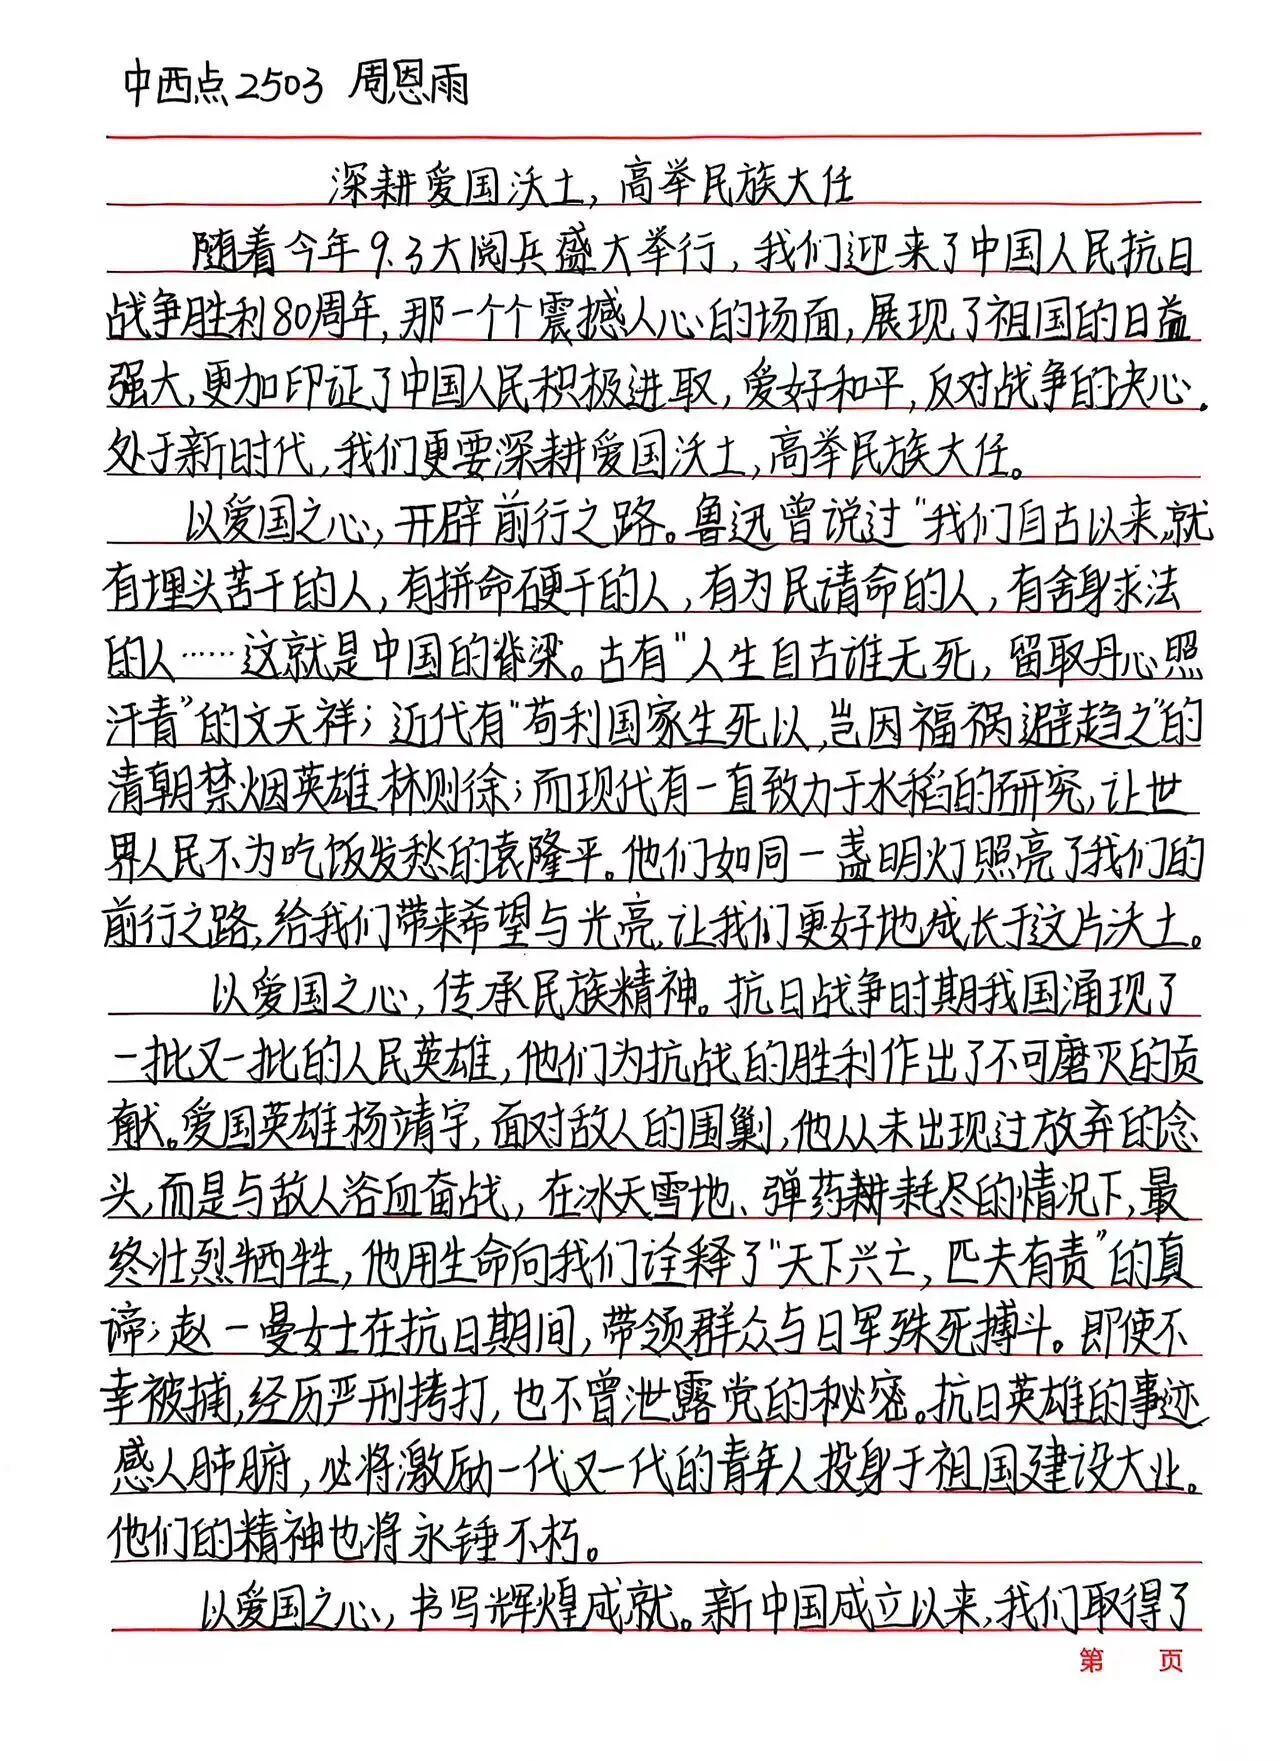 中西点2503 周恩雨
深耕爱国沃土，高举民族大任
随着今年9.3大阅兵盛大举行，我们迎来了中国人民抗日
战争胜利80周年，那一个个震撼人心的场面，展现了祖国的日益
强大，更加印证了中国人民积极进取，爱好和平，反对战争的决心．
处于新时代，我们更要深耕爱国沃土，高举民族大任。
以爱国之心，开辟前行之路。鲁迅曾说过“我们自古以来，就
有埋头苦干的人，有拼命硬干的人，有为民请命的人，有舍身求法
的人……这就是中国的脊梁。古有“人生自古谁无死，留取丹心照
汗青”的文天祥；近代有“苟利国家生死以，岂因福祸避趋之”的
清朝禁烟英雄林则徐；而现代有一直致力于水稻的研究，让世
界人民不为吃饭发愁的袁隆平。他们如同一盏明灯照亮了我们的
前行之路，给我们带来希望与光亮，让我们更好地成长于这片沃土。
以爱国之心，传承民族精神。抗日战争时期我国涌现了
一批又一批的人民英雄，他们为抗战的胜利作出了不可磨灭的贡
献。爱国英雄杨靖宇，面对敌人的围剿，他从未出现过放弃的念
头，而是与敌人浴血奋战，在冰天雪地、弹药耕耗尽的情况下，最
终壮烈牺牲，他用生命向我们诠释了“天下兴亡，匹夫有责”的真
谛；赵一曼女士在抗日期间，带领群众与日军殊死搏斗。即使不
幸被捕，经历严刑拷打，也不曾泄露党的秘密。抗日英雄的事迹
感人肺腑，必将激励一代又一代的青年人投身于祖国建设大业。
他们的精神也将永锤不朽。
以爱国之心，书写辉煌成就。新中国成立以来，我们取得了
第 页